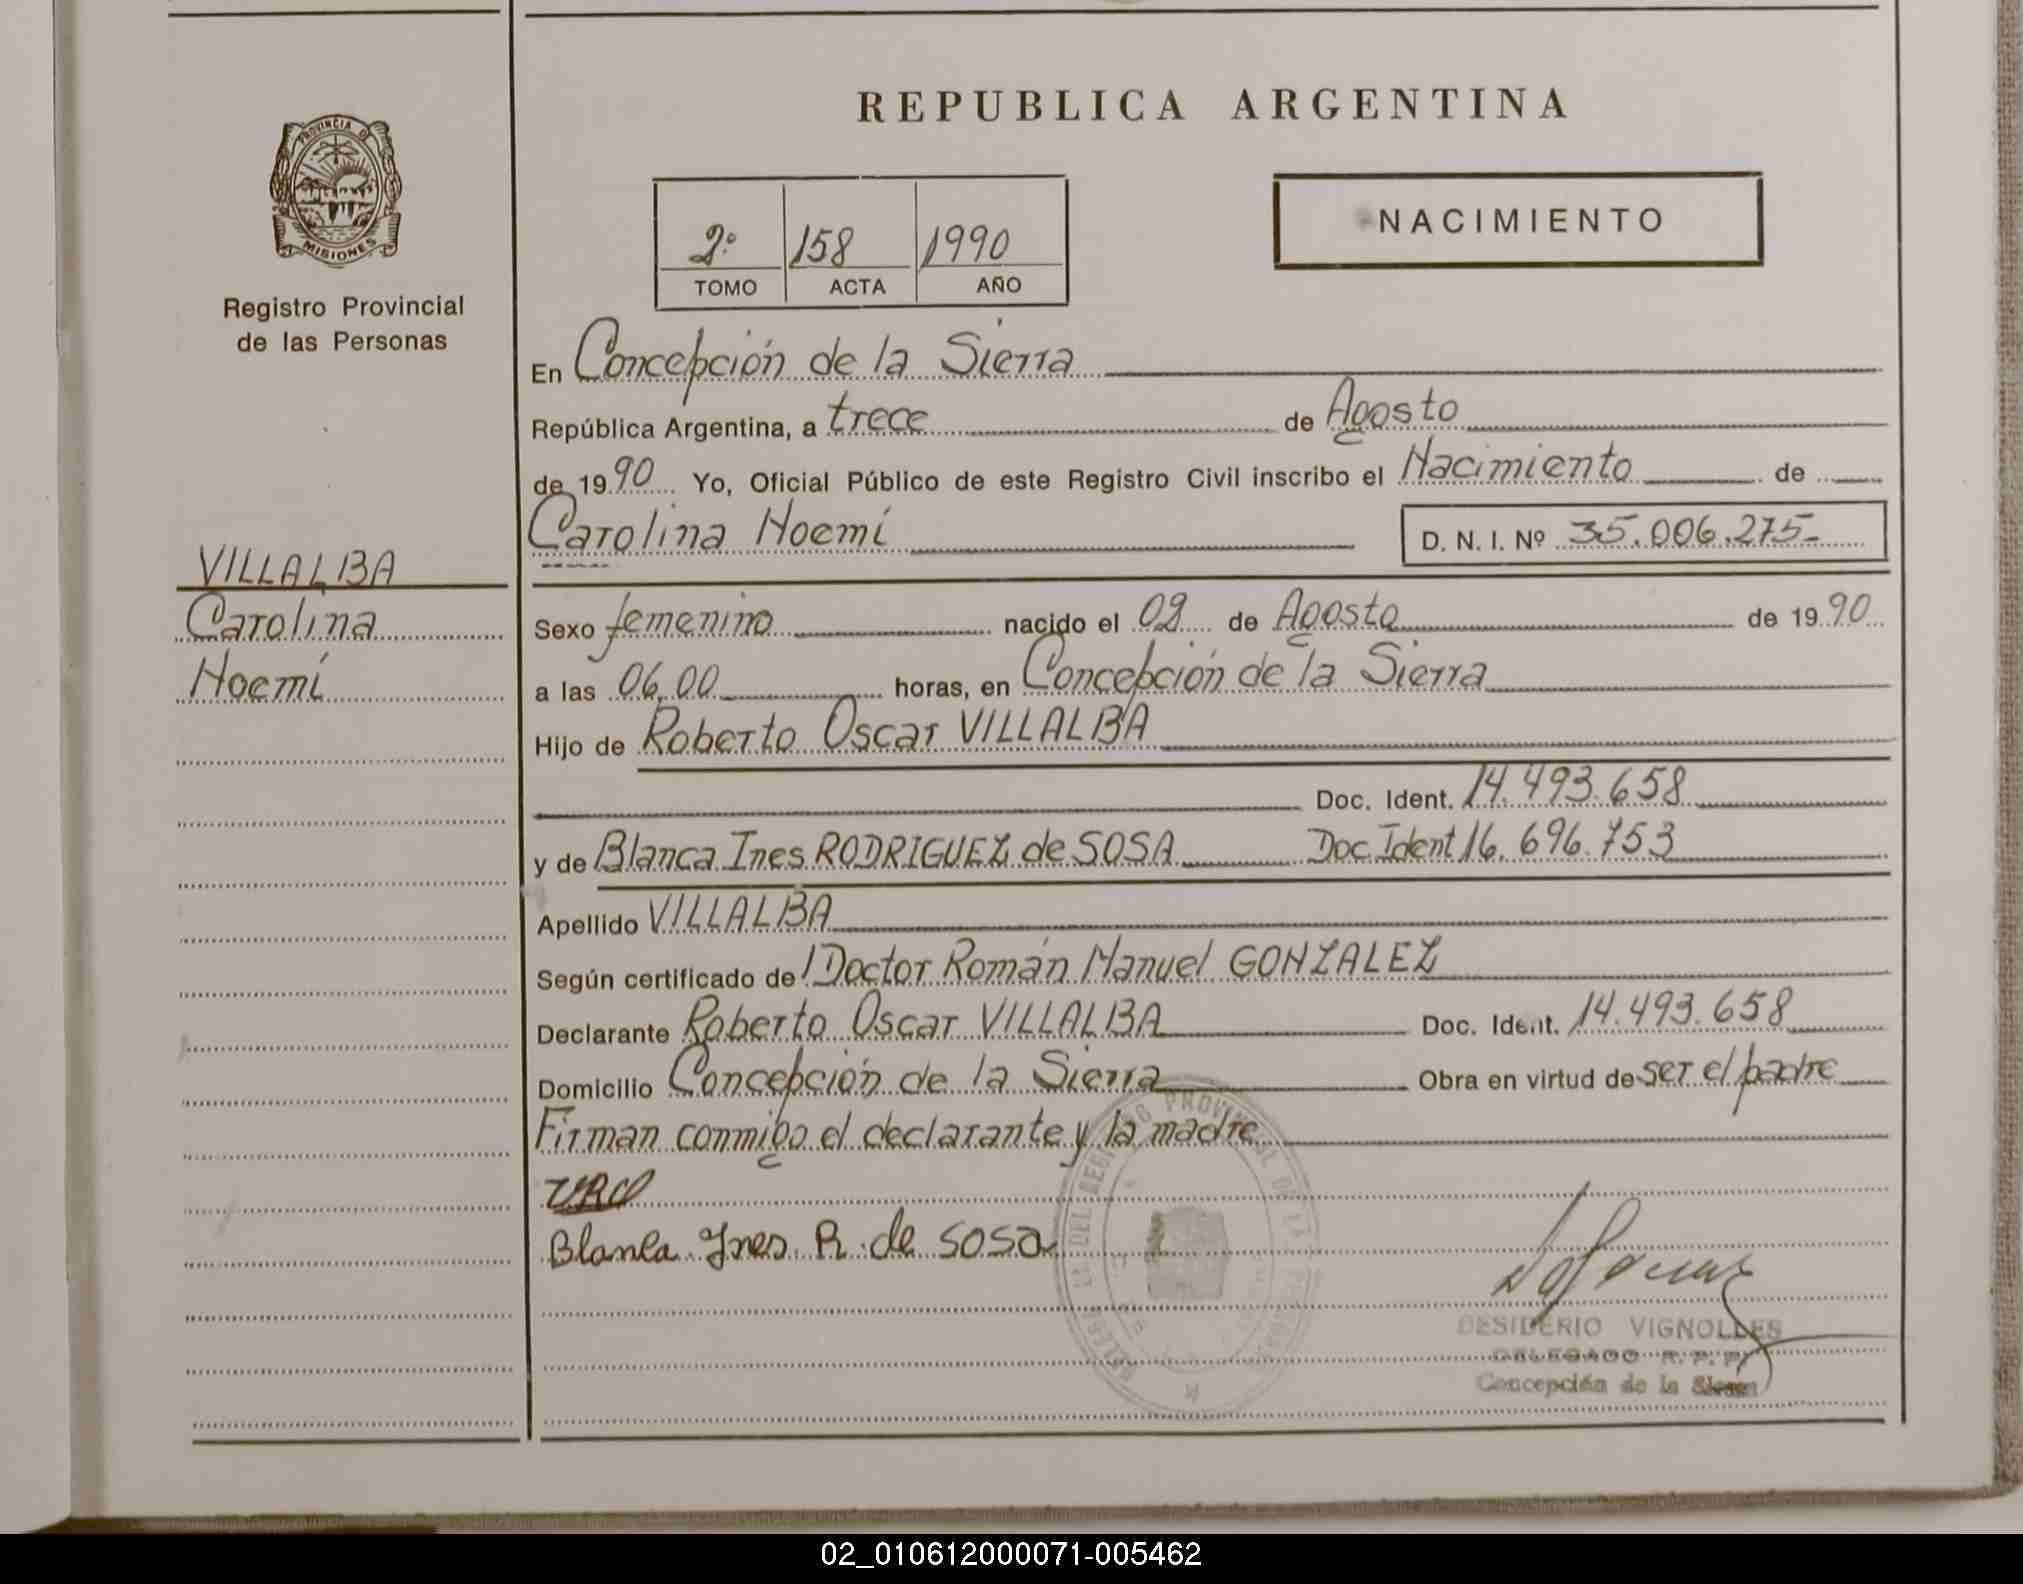 REPUBLICA ARGENTINA
PROVINCIA DE
MISIONES
Registro Provincial
de las Personas
2º 158 1990
TOMO ACTA AÑO
NACIMIENTO
En Concepción de la Sierra
República Argentina, a trece de Agosto
de 1990 Yo, Oficial Público de este Registro Civil inscribo el Nacimiento de
Carolina Noemí D. N. I. Nº 35.006.275-
VILLALBA
Carolina
Noemí
Sexo femenino nacido el 02 de Agosto de 1990
a las 06,00 horas, en Concepción de la Sierra
Hijo de Roberto Oscar VILLALBA
Doc. Ident. 14.493.658
y de Blanca Ines RODRIGUEZ de SOSA Doc Ident 16.696.753
Apellido VILLALBA
Según certificado del Doctor Román Manuel GONZALEZ
Declarante Roberto Oscar VILLALBA Doc. Ident. 14.493.658
Domicilio Concepción de la Sierra Obra en virtud de ser el padre
Firman conmigo el declarante y la madre
VRO
Blanca Ynes R. de sosa
DEL REGISTRO PROVINCIAL DE LAS PERSONAS
DESIDERIO VIGNOLLES
DELEGADO R. P. P.
Concepción de la Sierra
02_010612000071-005462